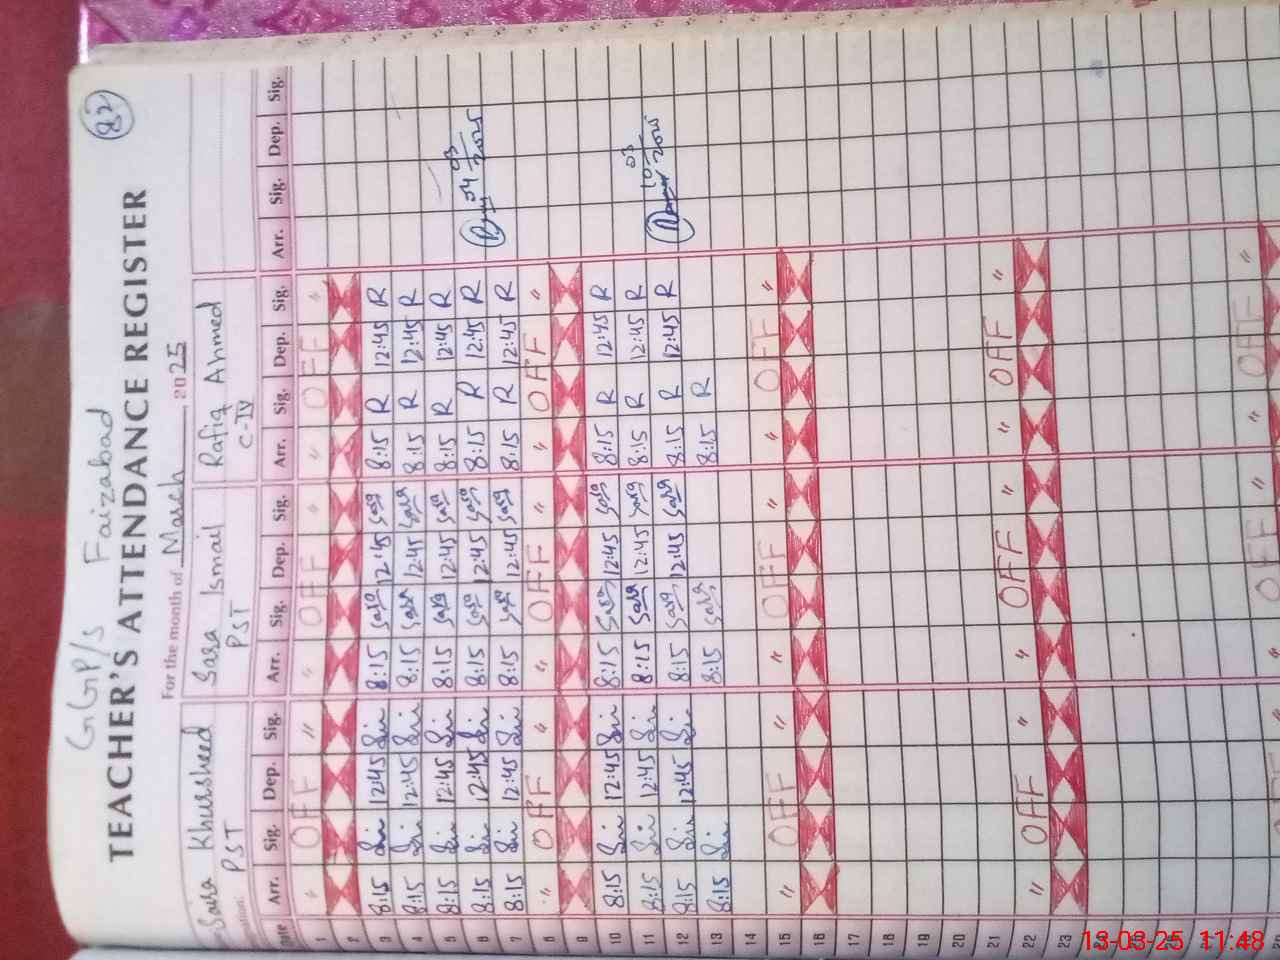 82
GGP/S Faizabad
TEACHER'S ATTENDANCE REGISTER
For the month of March 2025
Saira Khursheed Sara Ismail Rafiq Ahmed
PST PST C-IV
Arr. Sig. Dep. Sig. Arr. Sig. Dep. Sig. Arr. Sig. Dep. Sig. Arr. Sig. Dep. Sig.
1 " OFF " " OFF " " OFF "
2
3 8:15 12:45 8:15 Sara 12:45 Sara 8:15 R 12:45 R
4 8:15 12:45 8:15 Sara 12:45 Sara 8:15 R 12:45 R
5 8:15 12:45 8:15 Sara 12:45 Sara 8:15 R 12:45 R
6 8:15 12:45 8:15 Sara 12:45 Sara 8:15 R 12:45 R 04 03 2025
7 8:15 12:45 8:15 Sara 12:45 Sara 8:15 R 12:45 R
8 " OFF " " OFF " " OFF "
9
10 8:15 12:45 8:15 Sara 12:45 Sara 8:15 R 12:45 R
11 8:15 12:45 8:15 Sara 12:45 Sara 8:15 R 12:45 R
12 8:15 12:45 8:15 Sara 12:45 Sara 8:15 R 12:45 R 10 03 2025
13 8:15 8:15 Sara 8:15 R
14
15 " OFF " " OFF " " OFF "
16
17
18
19
20
21
22 " OFF " " OFF " " OFF "
23
24
25
26
27
28
" OFF " " OFF "
13-03-25 11:48